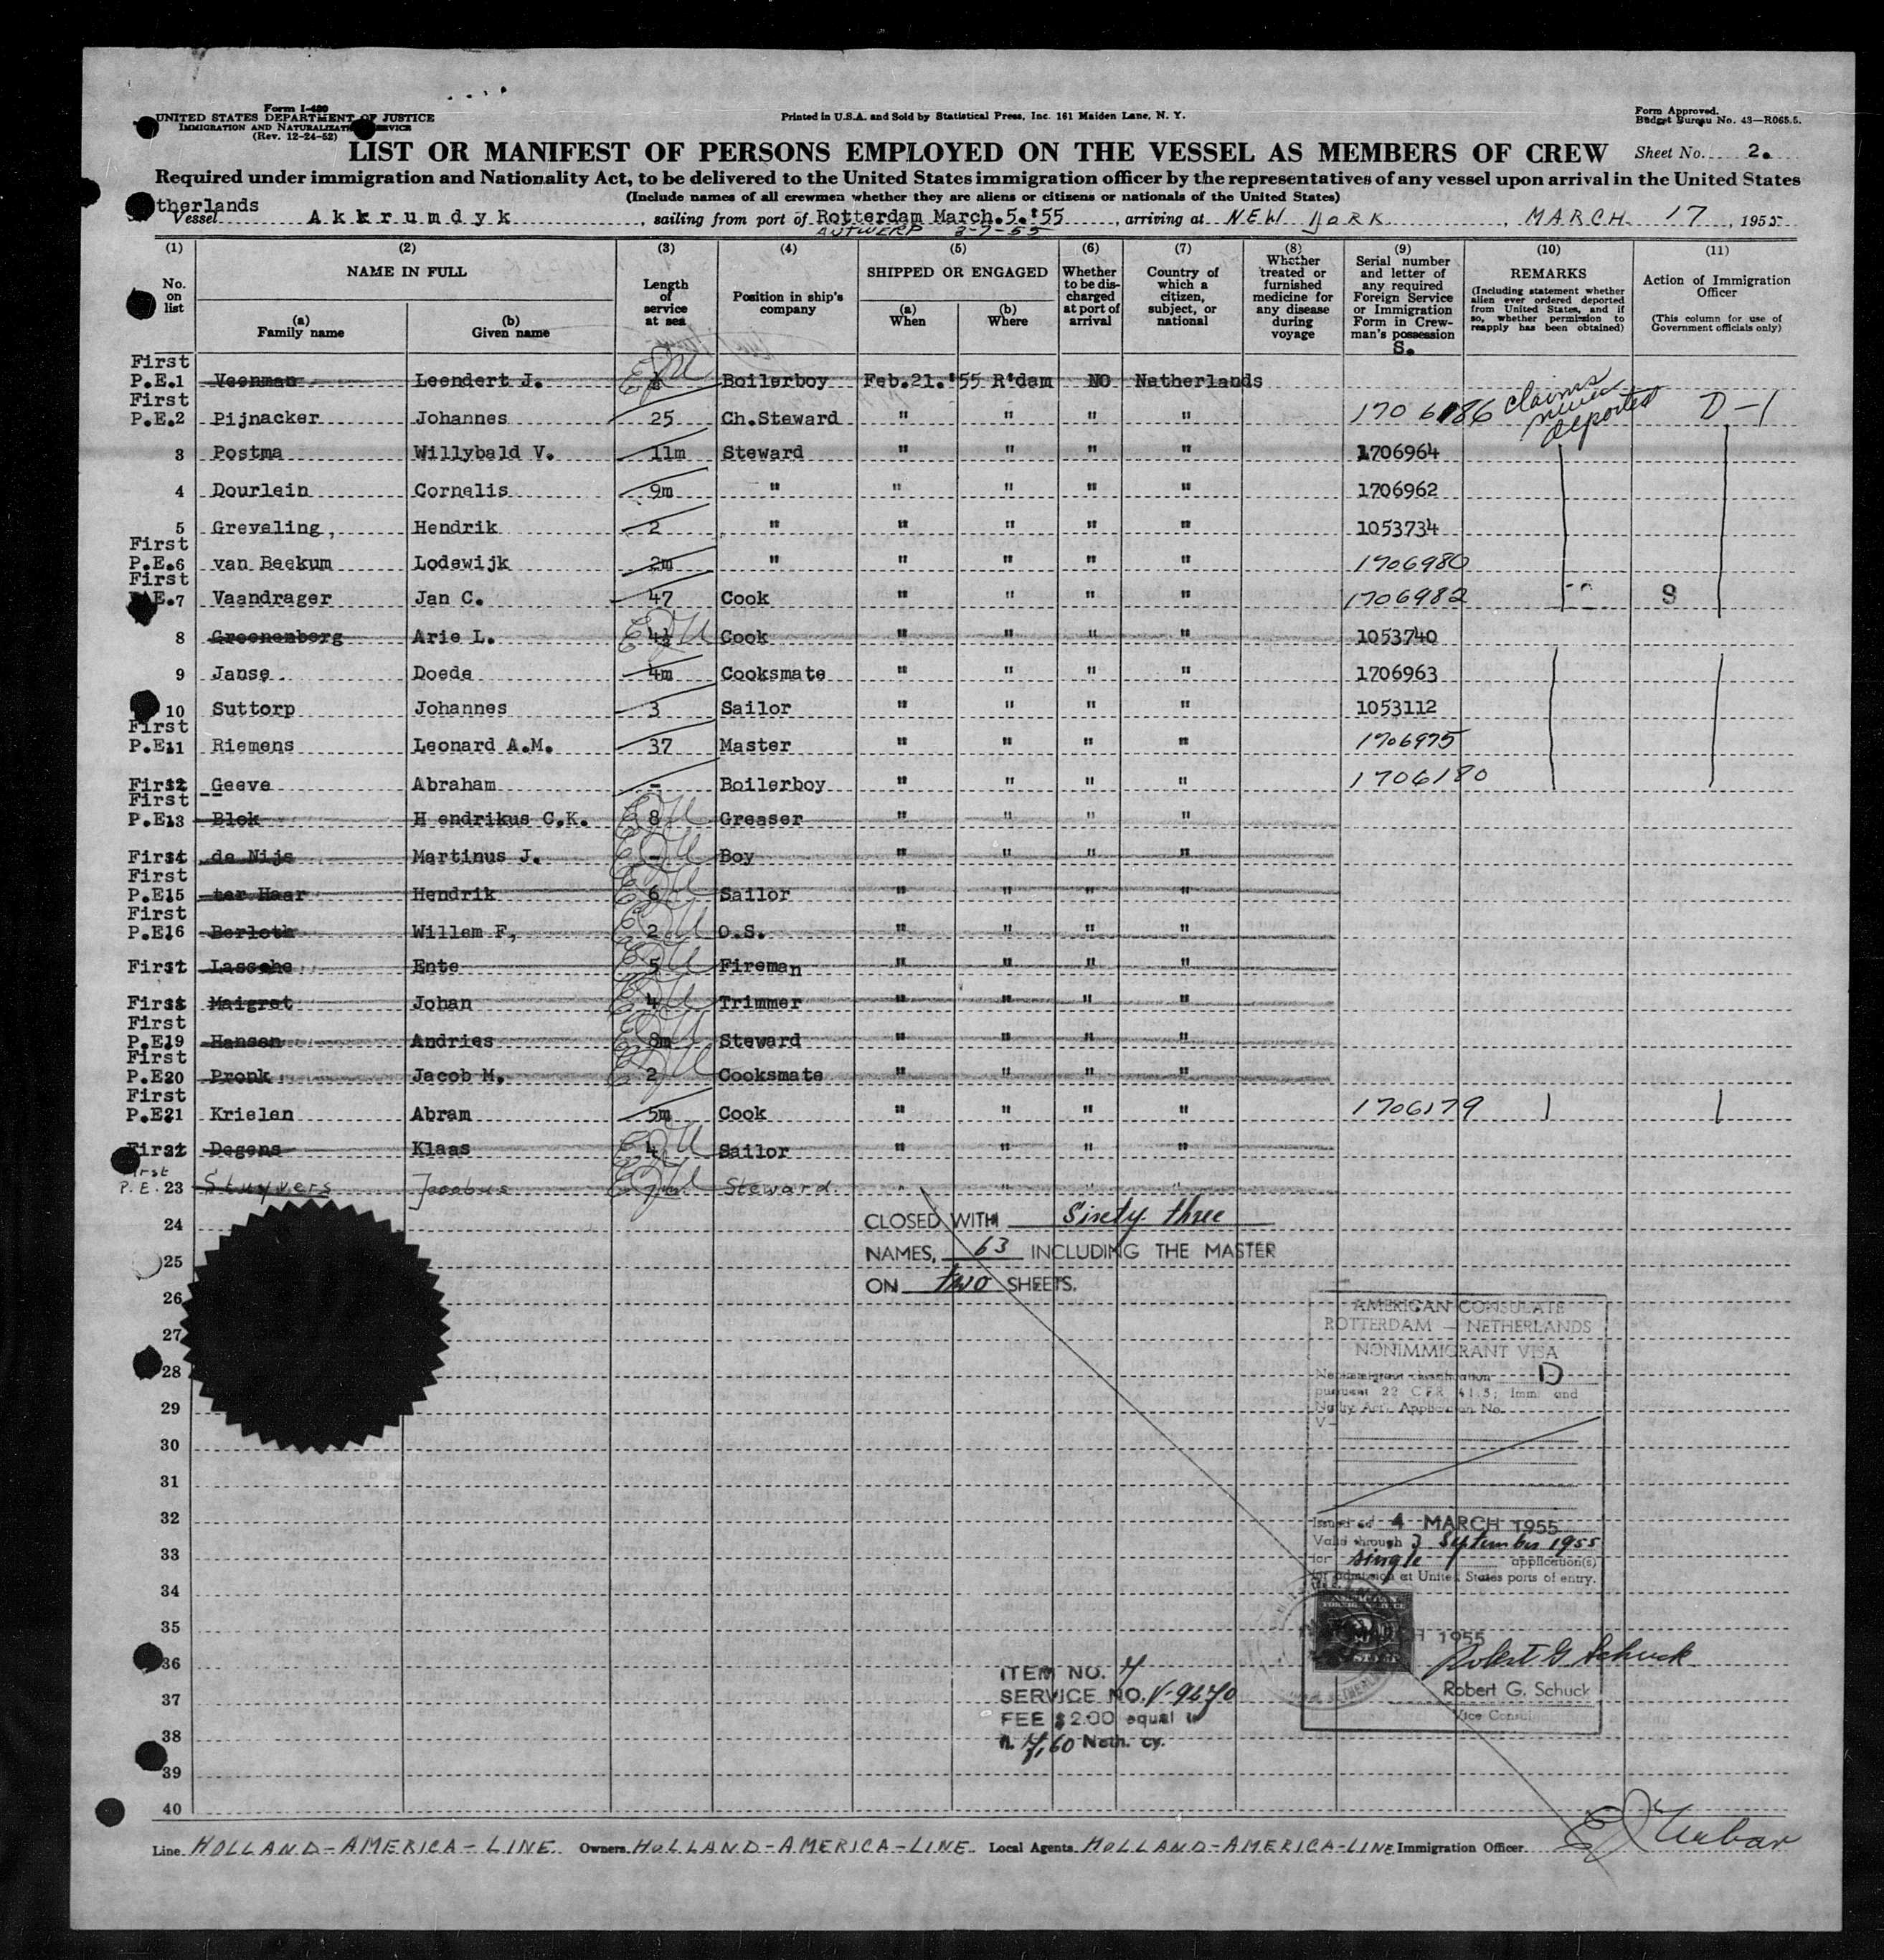 Form I-480
UNITED STATES DEPARTMENT OF JUSTICE
IMMIGRATION AND NATURALIZATION SERVICE
(Rev. 12-24-52)
Printed in U.S.A. and Sold by Statistical Press, Inc. 161 Maiden Lane, N. Y.
Form Approved.
Budget Bureau No. 43—R065.5.
LIST OR MANIFEST OF PERSONS EMPLOYED ON THE VESSEL AS MEMBERS OF CREW
Sheet No. 2.
Required under immigration and Nationality Act, to be delivered to the United States immigration officer by the representatives of any vessel upon arrival in the United States
(Include names of all crewmen whether they are aliens or citizens or nationals of the United States)
therlands
Vessel Akkrumdyk, sailing from port of Rotterdam March.5.'55, arriving at NEW YORK, MARCH 17, 1955
ANTWERP 3-7-55
(1) (2) (3) (4) (5) (6) (7) (8) (9) (10) (11)
No. on list
NAME IN FULL
(a) Family name
(b) Given name
Length of service at sea
Position in ship's company
SHIPPED OR ENGAGED
(a) When
(b) Where
Whether to be discharged at port of arrival
Country of which a citizen, subject, or national
Whether treated or furnished medicine for any disease during voyage
Serial number and letter of any required Foreign Service or Immigration Form in Crewman's possession
S.
REMARKS
(Including statement whether alien ever ordered deported from United States, and if so, whether permission to reapply has been obtained)
Action of Immigration Officer
(This column for use of Government officials only)
First
P.E.1 Veenman Leendert J. Boilerboy Feb.21.'55 R'dam NO Netherlands
First
P.E.2 Pijnacker Johannes 25 Ch.Steward " " " " 1706186 claims never deported D-1
3 Postma Willybald V. 11m Steward " " " " 1706964
4 Dourlein Cornelis 9m " " " " " 1706962
5 Greveling, Hendrik 2 " " " " " 1053734
First
P.E.6 van Beekum Lodewijk 2m " " " " " 1706980
First
P.E.7 Vaandrager Jan C. 47 Cook " " " " 1706982 S
8 Groenenberg Arie L. Cook " " " " 1053740
9 Janse Doede 4m Cooksmate " " " " 1706963
10 Suttorp Johannes 3 Sailor " " " " 1053112
First
P.E.11 Riemens Leonard A.M. 37 Master " " " " 1706975
First 12 Geeve Abraham - Boilerboy " " " " 1706180
First
P.E.13 Blok H endrikus C.K. 8 Greaser " " " "
First 14 de Nijs Martinus J. - Boy " " " "
First
P.E.15 ter Haar Hendrik 6 Sailor " " " "
First
P.E.16 Berloth Willem F, 2 O.S. " " " "
First 17 Lassche Ente 5 Fireman " " " "
First 18 Maigret Johan 4 Trimmer " " " "
First
P.E.19 Hansen Andries 8m Steward " " " "
First
P.E.20 Pronk Jacob M. 2 Cooksmate " " " "
First
P.E.21 Krielen Abram 5m Cook " " " " 1706179
First 22 Degens Klaas 4 Sailor " " " "
First
P.E. 23 Stuyvers Jacobus Steward " " " "
24
CLOSED WITH Sixty three
NAMES, 63 INCLUDING THE MASTER
25
ON two SHEETS.
26
AMERICAN CONSULATE
27
ROTTERDAM — NETHERLANDS
NONIMMIGRANT VISA
28
Nonimmigrant classification D
pursuant 22 CFR 41.5; Imm. and
29
Natny Act. Application No.
V-
30
31
32
Issued on 4 MARCH 1955
Valid through 3 September 1955
33
for single application(s)
for admission at United States ports of entry.
34
AMERICAN
FOREIGN SERVICE
35
MARCH 1955
STAMP
36
Robert G. Schuck
ITEM NO. 4
Robert G. Schuck
37
SERVICE NO. V-9270
Vice Consul
FEE $2.00 equal to
38
fl. 7,60 Neth. cy.
39
40
Line HOLLAND-AMERICA-LINE Owners HOLLAND-AMERICA-LINE Local Agents HOLLAND-AMERICA-LINE Immigration Officer